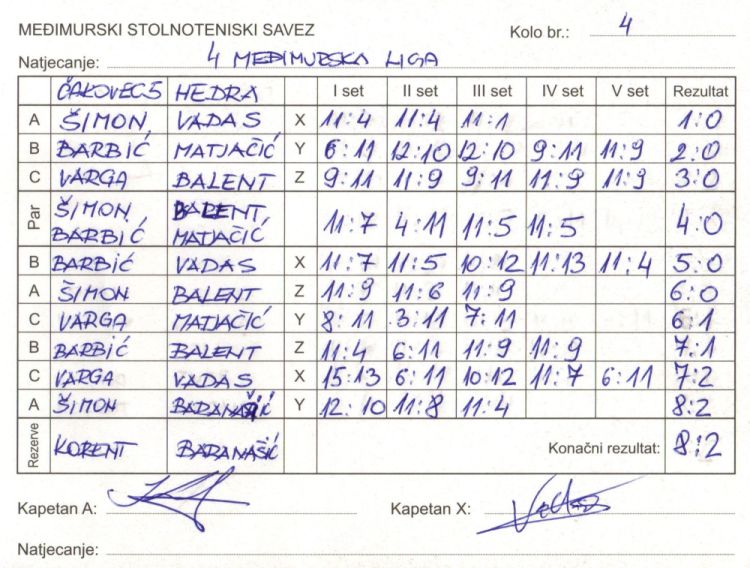 MEĐIMURSKI STOLNOTENISKI SAVEZ Kolo br.: 4
Natjecanje: 4 MEĐIMURSKA LIGA
ČAKOVEC 5 HEDRA I set II set III set IV set V set Rezultat
A ŠIMON VADAS X 11:4 11:4 11:1 1:0
B BARBIĆ MATJAČIĆ Y 6:11 12:10 12:10 9:11 11:9 2:0
C VARGA BALENT Z 9:11 11:9 9:11 11:9 11:9 3:0
Par ŠIMON BALENT,
BARBIĆ MATJAČIĆ 11:7 4:11 11:5 11:5 4:0
B BARBIĆ VADAS X 11:7 11:5 10:12 11:13 11:4 5:0
A ŠIMON BALENT Z 11:9 11:6 11:9 6:0
C VARGA MATJAČIĆ Y 8:11 3:11 7:11 6:1
B BARBIĆ BALENT Z 11:4 6:11 11:9 11:9 7:1
C VARGA VADAS X 15:13 6:11 10:12 11:7 6:11 7:2
A ŠIMON BADANAŠIĆ Y 12:10 11:8 11:4 8:2
Rezerve KORENT BADANAŠIĆ Konačni rezultat: 8:2
Kapetan A: Kapetan X:
Natjecanje: